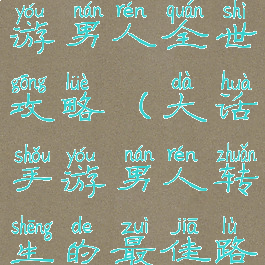 yóu nán rén quán shì
游男人全世
gōng lüè dà huà
攻略（大话
shǒu yóu nán rén zhuǎn
手游男人转
shēng de zuì jiā lù
生的最佳路